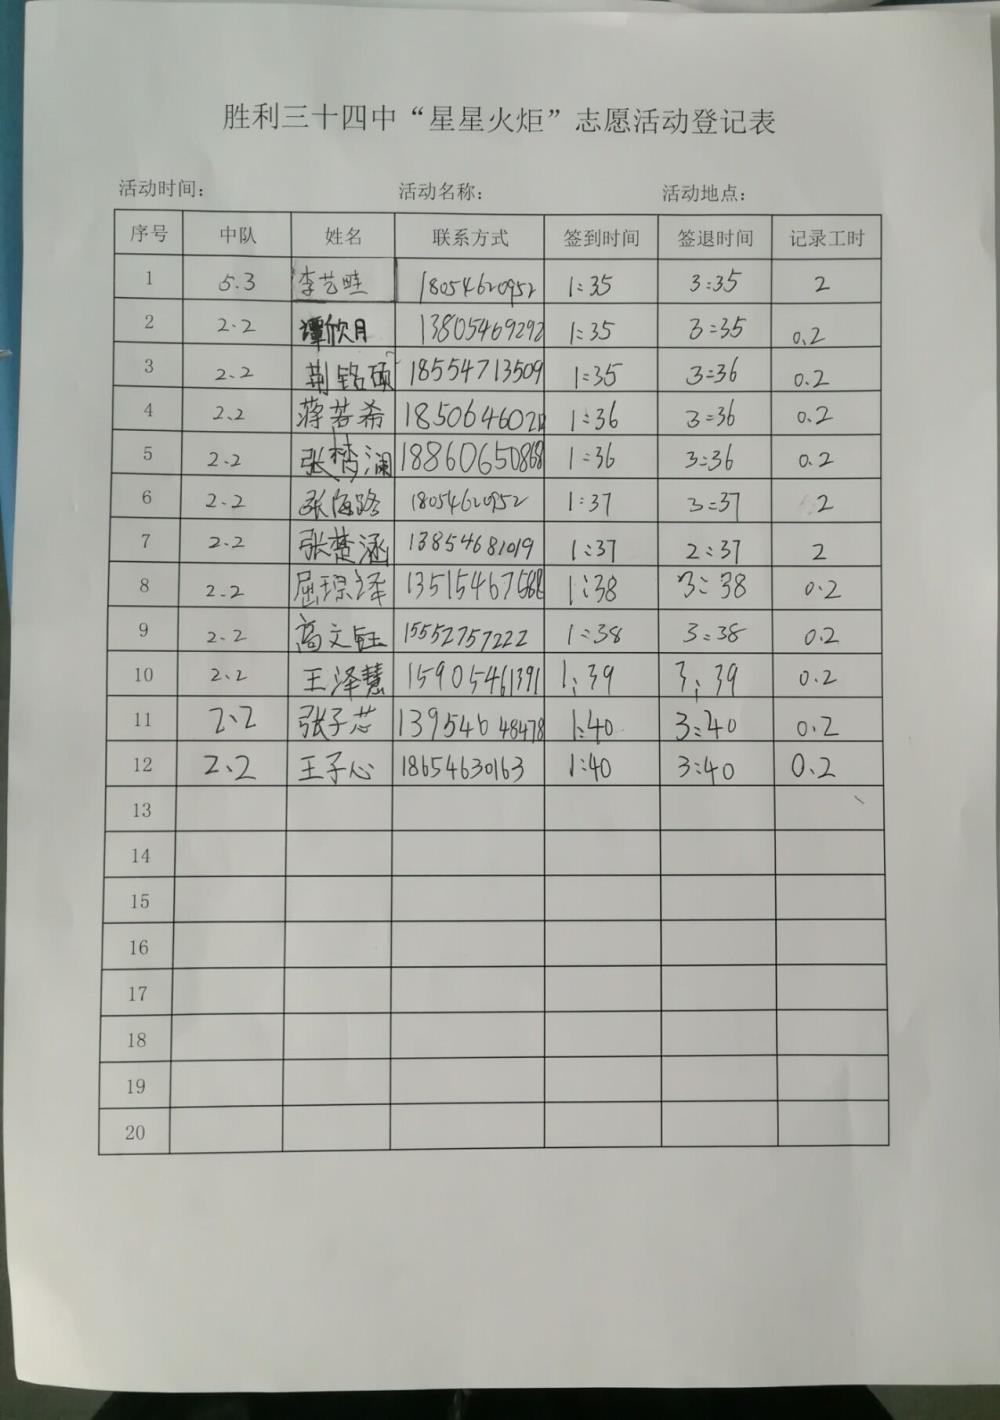 胜利三十四中“星星火炬”志愿活动登记表
活动时间： 活动名称： 活动地点：
序号 中队 姓名 联系方式 签到时间 签退时间 记录工时
1 5.3 李艺畦 18054620952 1:35 3:35 2
2 2.2 谭欣月 13805469292 1:35 3:35 0.2
3 2.2 荆铭硕 18554713509 1:35 3:36 0.2
4 2.2 蒋若希 1:36 3:36 0.2
5 2.2 张梦澜 18860650868 1:36 3:36 0.2
6 2.2 张海路 18054620952 1:37 3:37 2
7 2.2 张楚涵 13854681019 1:37 2:37 2
8 2.2 屈琮泽 1:38 3:38 0.2
9 2.2 高文钰 15552757222 1:38 3:38 0.2
10 2.2 王泽慧 15905461391 1:39 3:39 0.2
11 2.2 张子芯 13954648478 1:40 3:40 0.2
12 2.2 王子心 18654630163 1:40 3:40 0.2
13
14
15
16
17
18
19
20